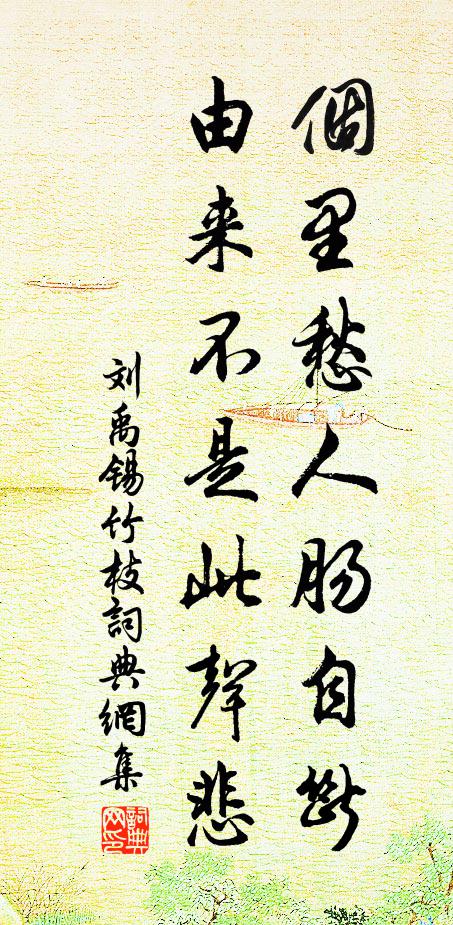 個里愁人肠自斷
由来不是此聲悲
刘禹锡竹枝詞典網集
詞典网印